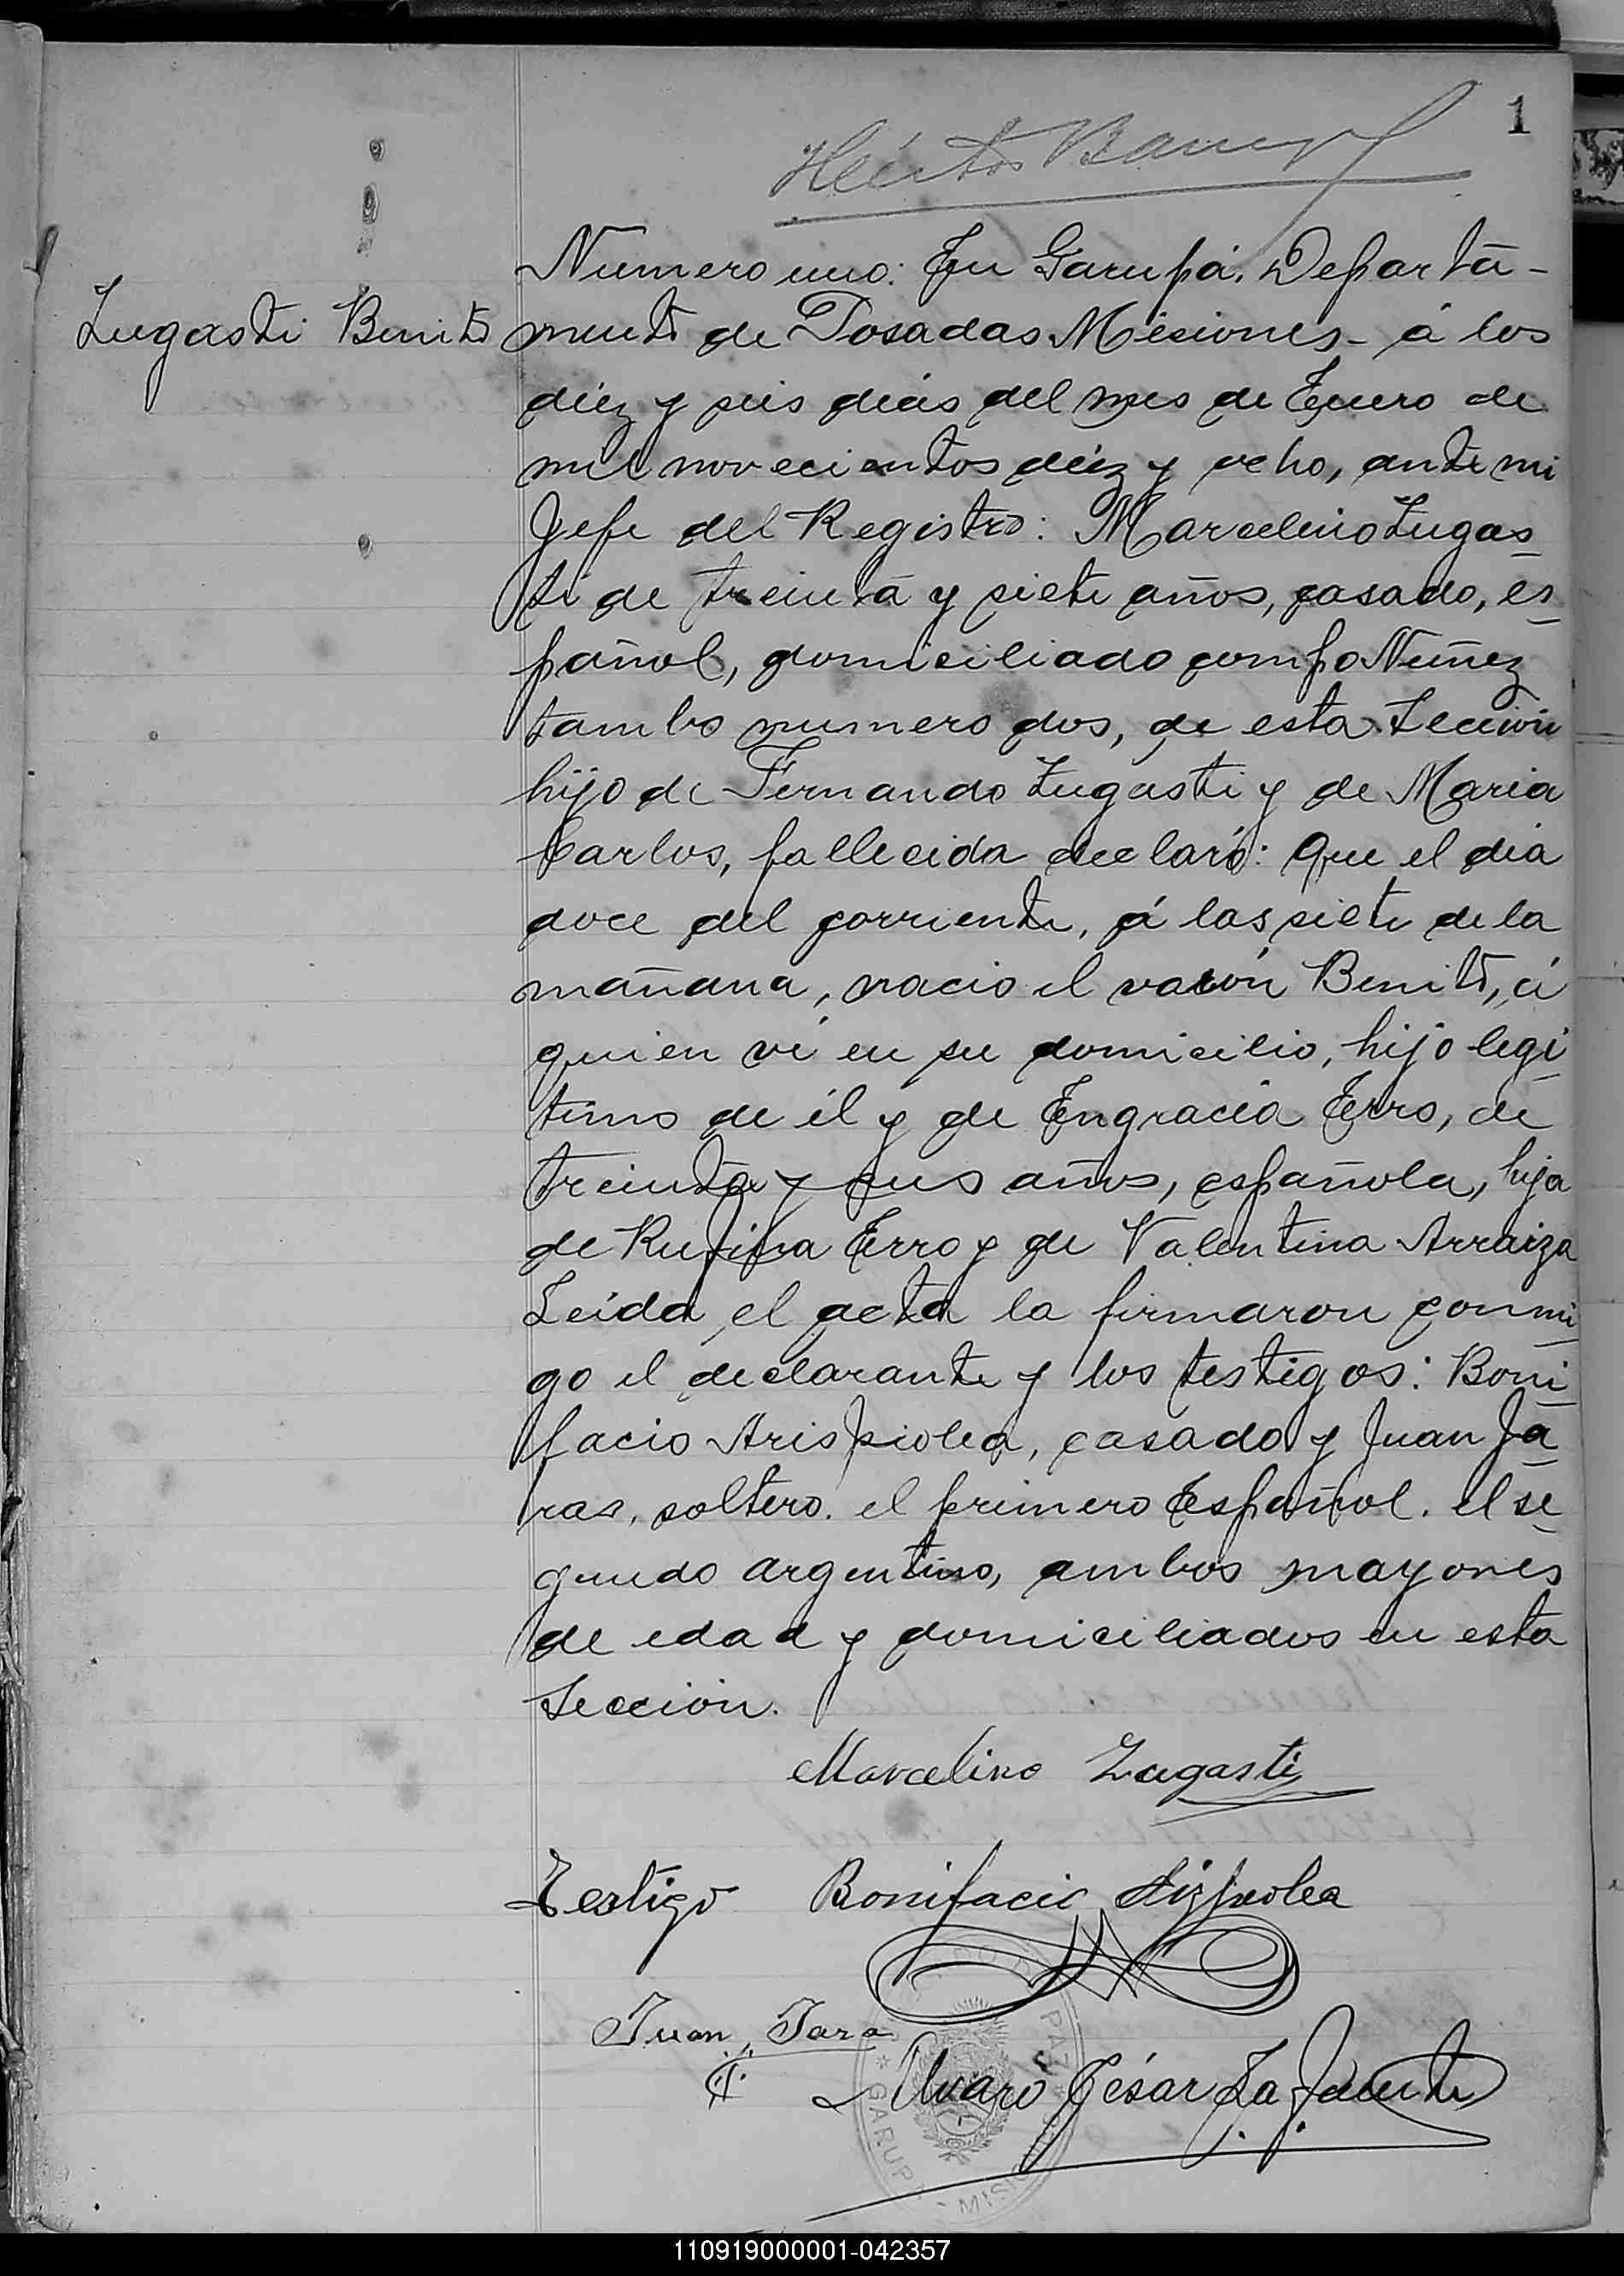 1
Héctor
Numero uno: En Garupá, Departa-
Zugasti Benito
mento de Posadas Misiones- á los
diéz y seis dias del mes de Enero de
mil novecientos diéz y ocho, ante mi
Jefe del Registro: Marcelino Zugas
ti de treinta y siete años, casado, es
pañol, domiciliado campo Nuñez
tambo numero dos, de esta Sección
hijo de Fernando Zugasti y de Maria
Carlos, fallecida declaró: Que el dia
doce del corriente, á las siete de la
mañana, nacio el varón Benito, á
quien ví en su domicilio, hijo legi
timo de él y de Engracia Erro, de
treinta y seis años, española, hija
de Rufina Erro y de Valentina Arraiza
Leida el acta la firmaron conmi
go el declarante y los testigos: Boni
facio Arispiolea, casado y Juan Ja
ras, soltero. el primero Español. el se
gundo argentino, ambos mayores
de edad y domiciliados en esta
Sección.
Marcelino Zugasti
Testigo Bonifacio Aizpiolea
Juan Jara
Alvaro César La Fuente
PAZ
GARUP
MISIO
110919000001-042357